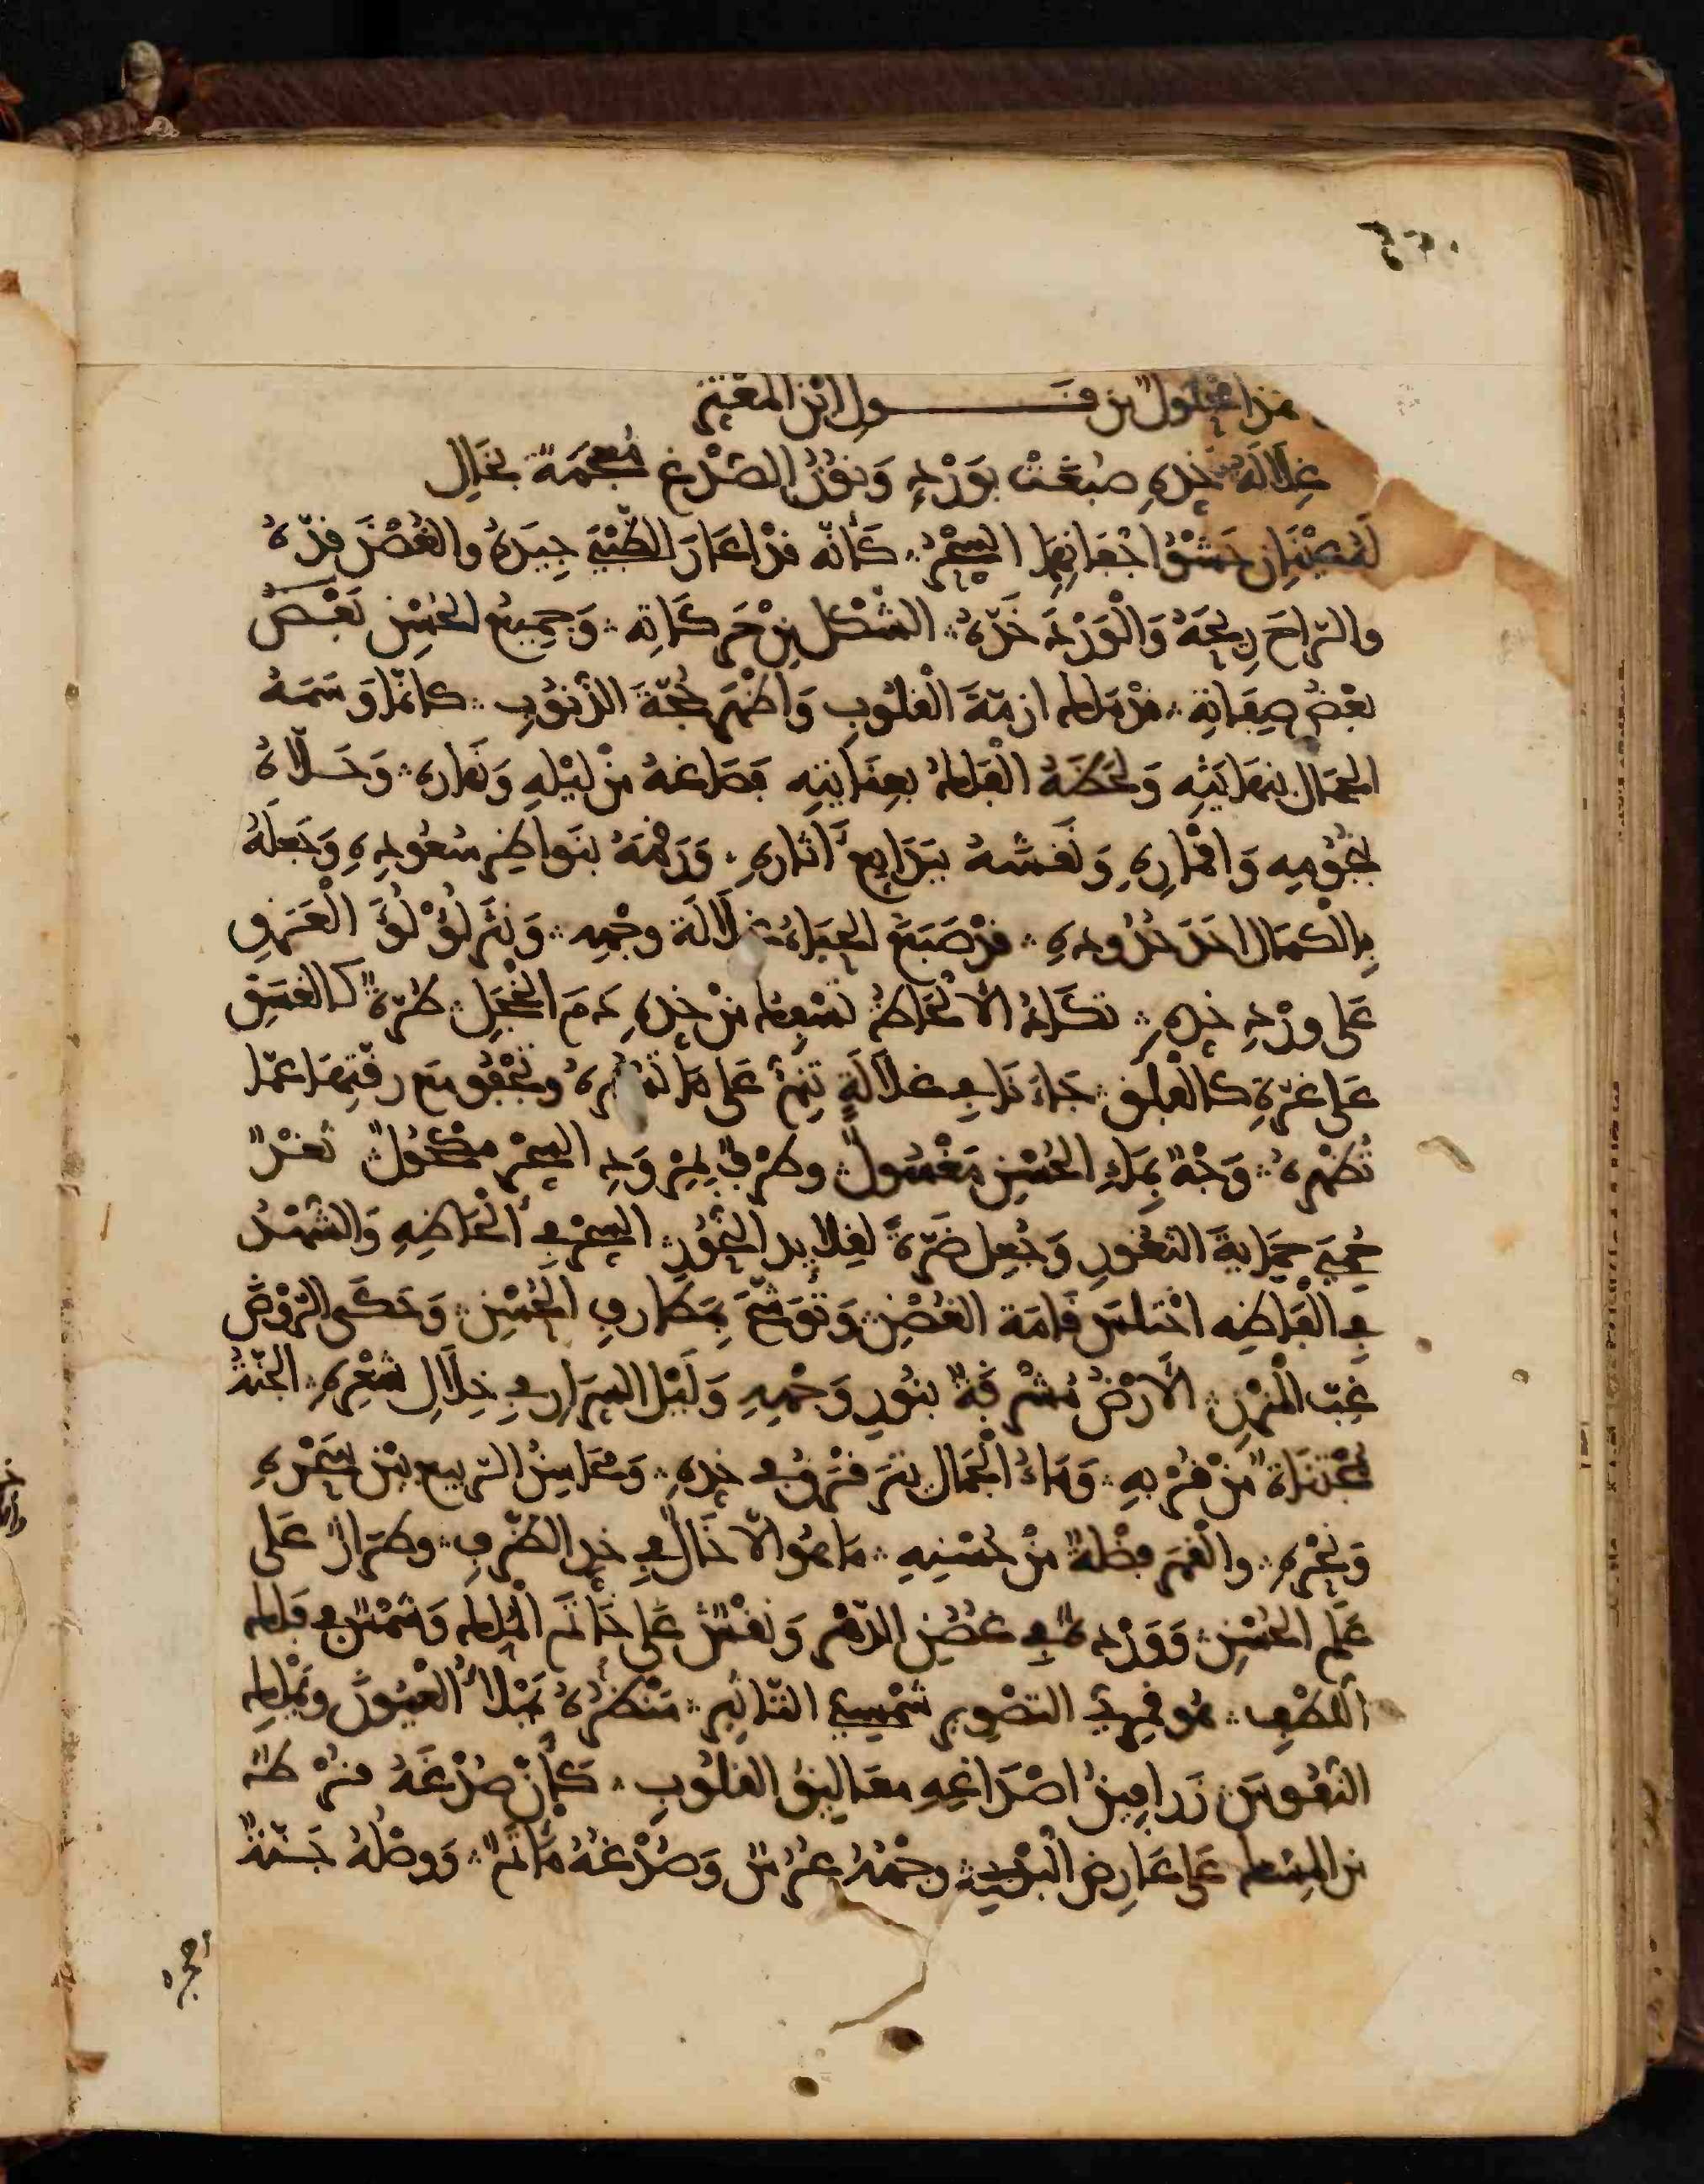 هذا محلول من قول ابن المعتز
غلالة خده صبغت بورد ونور الصدغ معجمة بخال
له عينان حشو اجفانهما السحر كأنه قد اعار الظبي جيده والغصن قده
والراح ريحه والورد خده الشكل من حركاته وجميع الحسن بعض
بعض صفاته قد ملك ازمة القلوب واظهر حجة الذنوب كانما وسمه
الجمال بنهايته ولحظه الفلك بعنايته فصاغه من ليله ونهاره وحلاه
بنجومه واقماره ونقشه ببدايع آثاره ورمقه بنواظر سعوده وجعله
بالكمال احد حدوده قد صبغ الحياء غلالة وجهه ونثر لؤلؤ العرق
على ورد خده تكاد الالحاظ تسفك من خده دم الخجل طرة كالغسق
على غرة كالفلق جاءنا في غلالة تنم على ما تستره وتجفو مع رقتها عما
تظهره وجه بماء الحسن مغسول وطرف بمرود السحر مكحول ثغر
حمي حماية الثغور وجعل ضرة لقلايد النحور السحر في الحاظه والشهد
في الفاظه اختلس قامة الغصن وتوشح بمطارف الحسن وحكى الروض
غب المزن الارض مشرقة بنور وجهه وليل السرار في خلال شعره الجنة
مجتناة من قربه وماء الجمال يترقرق في خده ومحاسن الربيع بين سحره
ونحره والقمر فضلة من حسنه ما هو الا خال في خد الظرف وطراز على
علم الحسن ووردة في غصن الدهر ونقش على خاتم الملك وشمس في فلك
اللطف هو قمري التصوير شمسي التاثير منظره يملا العيون ويملك
النفوس زرافين اصداغه معاليق القلوب كأن صدغه قرط
من المسك على عارض البدر وجهه عرس وصدغه مأتم ووصله جنة